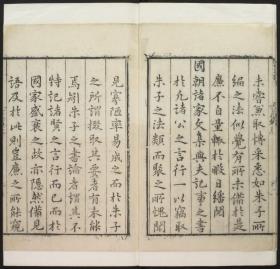 未嘗兼取博采悉如朱子所
編之法似覺有所未備於是
廉不自量輒於暇日繙閱
國朝諸家文集與夫記事之書
於凡諸公之言行一以竊取
朱子之法類而聚之所愧聞
見寡陋率易成之而於朱子
之所謂掇取其要者有未能
焉矧朱子之書論者謂其不
特記諸賢之言行而已而於
國家盛衰之故亦隱然備見
語及於此則豈廉之所能窺